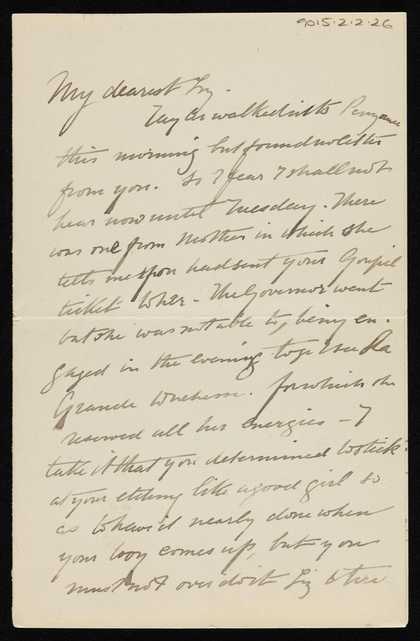 9015-2-2-26
My dearest Liz.
Taylor walked into Penzance
this morning but found no letter
from you. So I fear I shall not
hear now until Tuesday. There
was one from Mother in which she
tells me you had sent your Gospel
ticket to her - The Governor went
but she was not able to, being en-
gaged in the evening to go & see La
Grande Duchesse. for which she
reserved all her energies - I
take it that you determined to stick
at your etching like a good girl so
as to have it nearly done when
your boy comes up, but you
must not overdo it Liz & tire